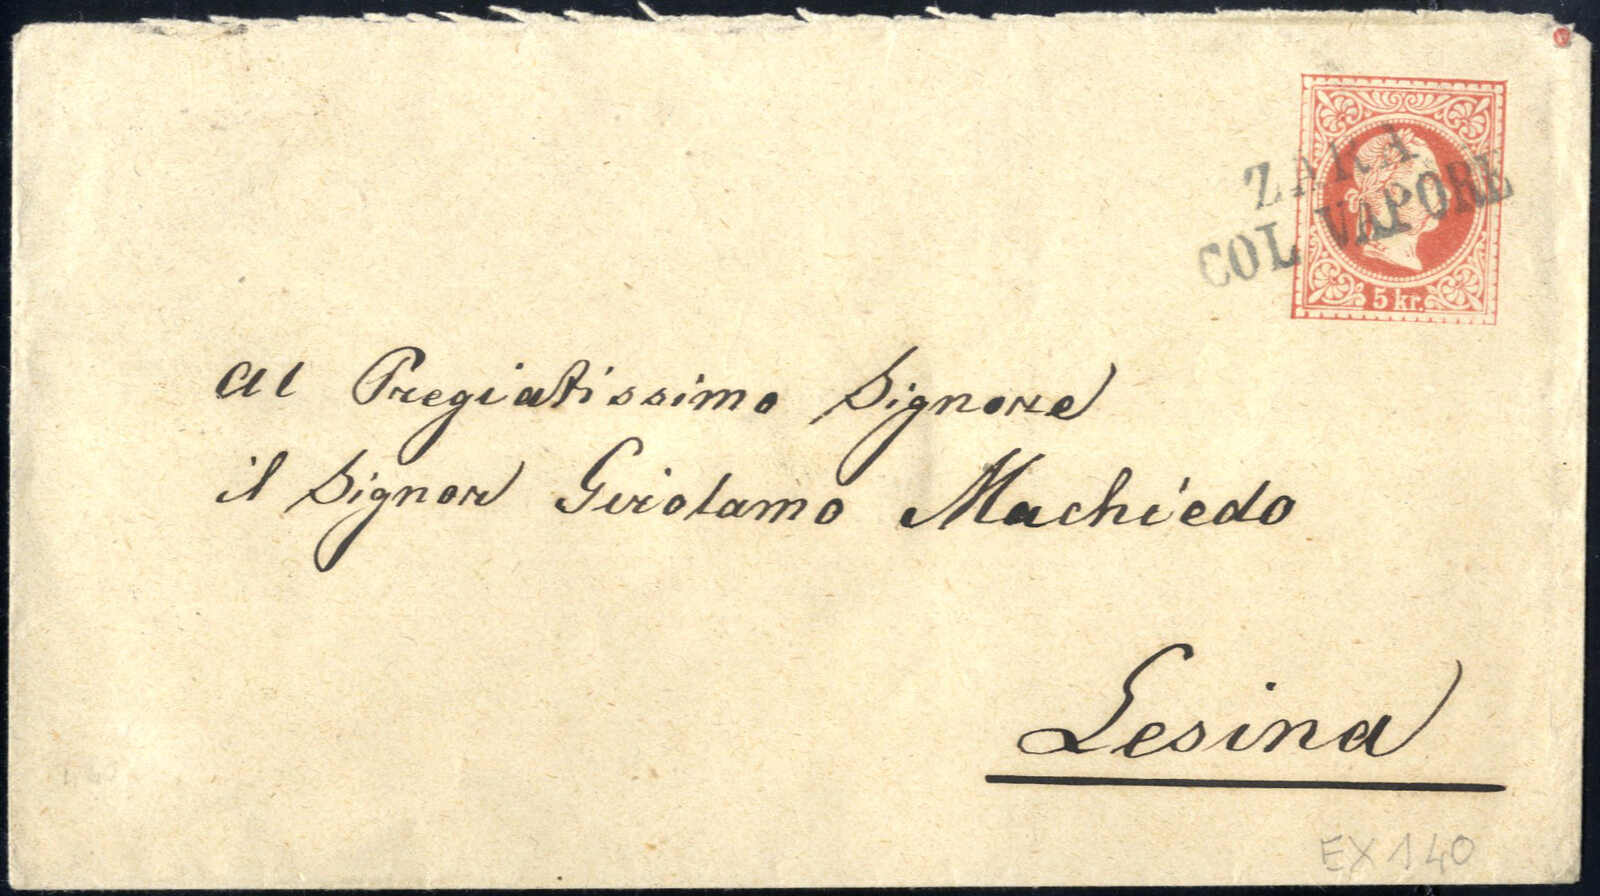 ZARA
COL VAPORE
5 kr.
Al Pregiatissimo Signore
il Signor Girolamo Machiedo
Lesina
EX 140